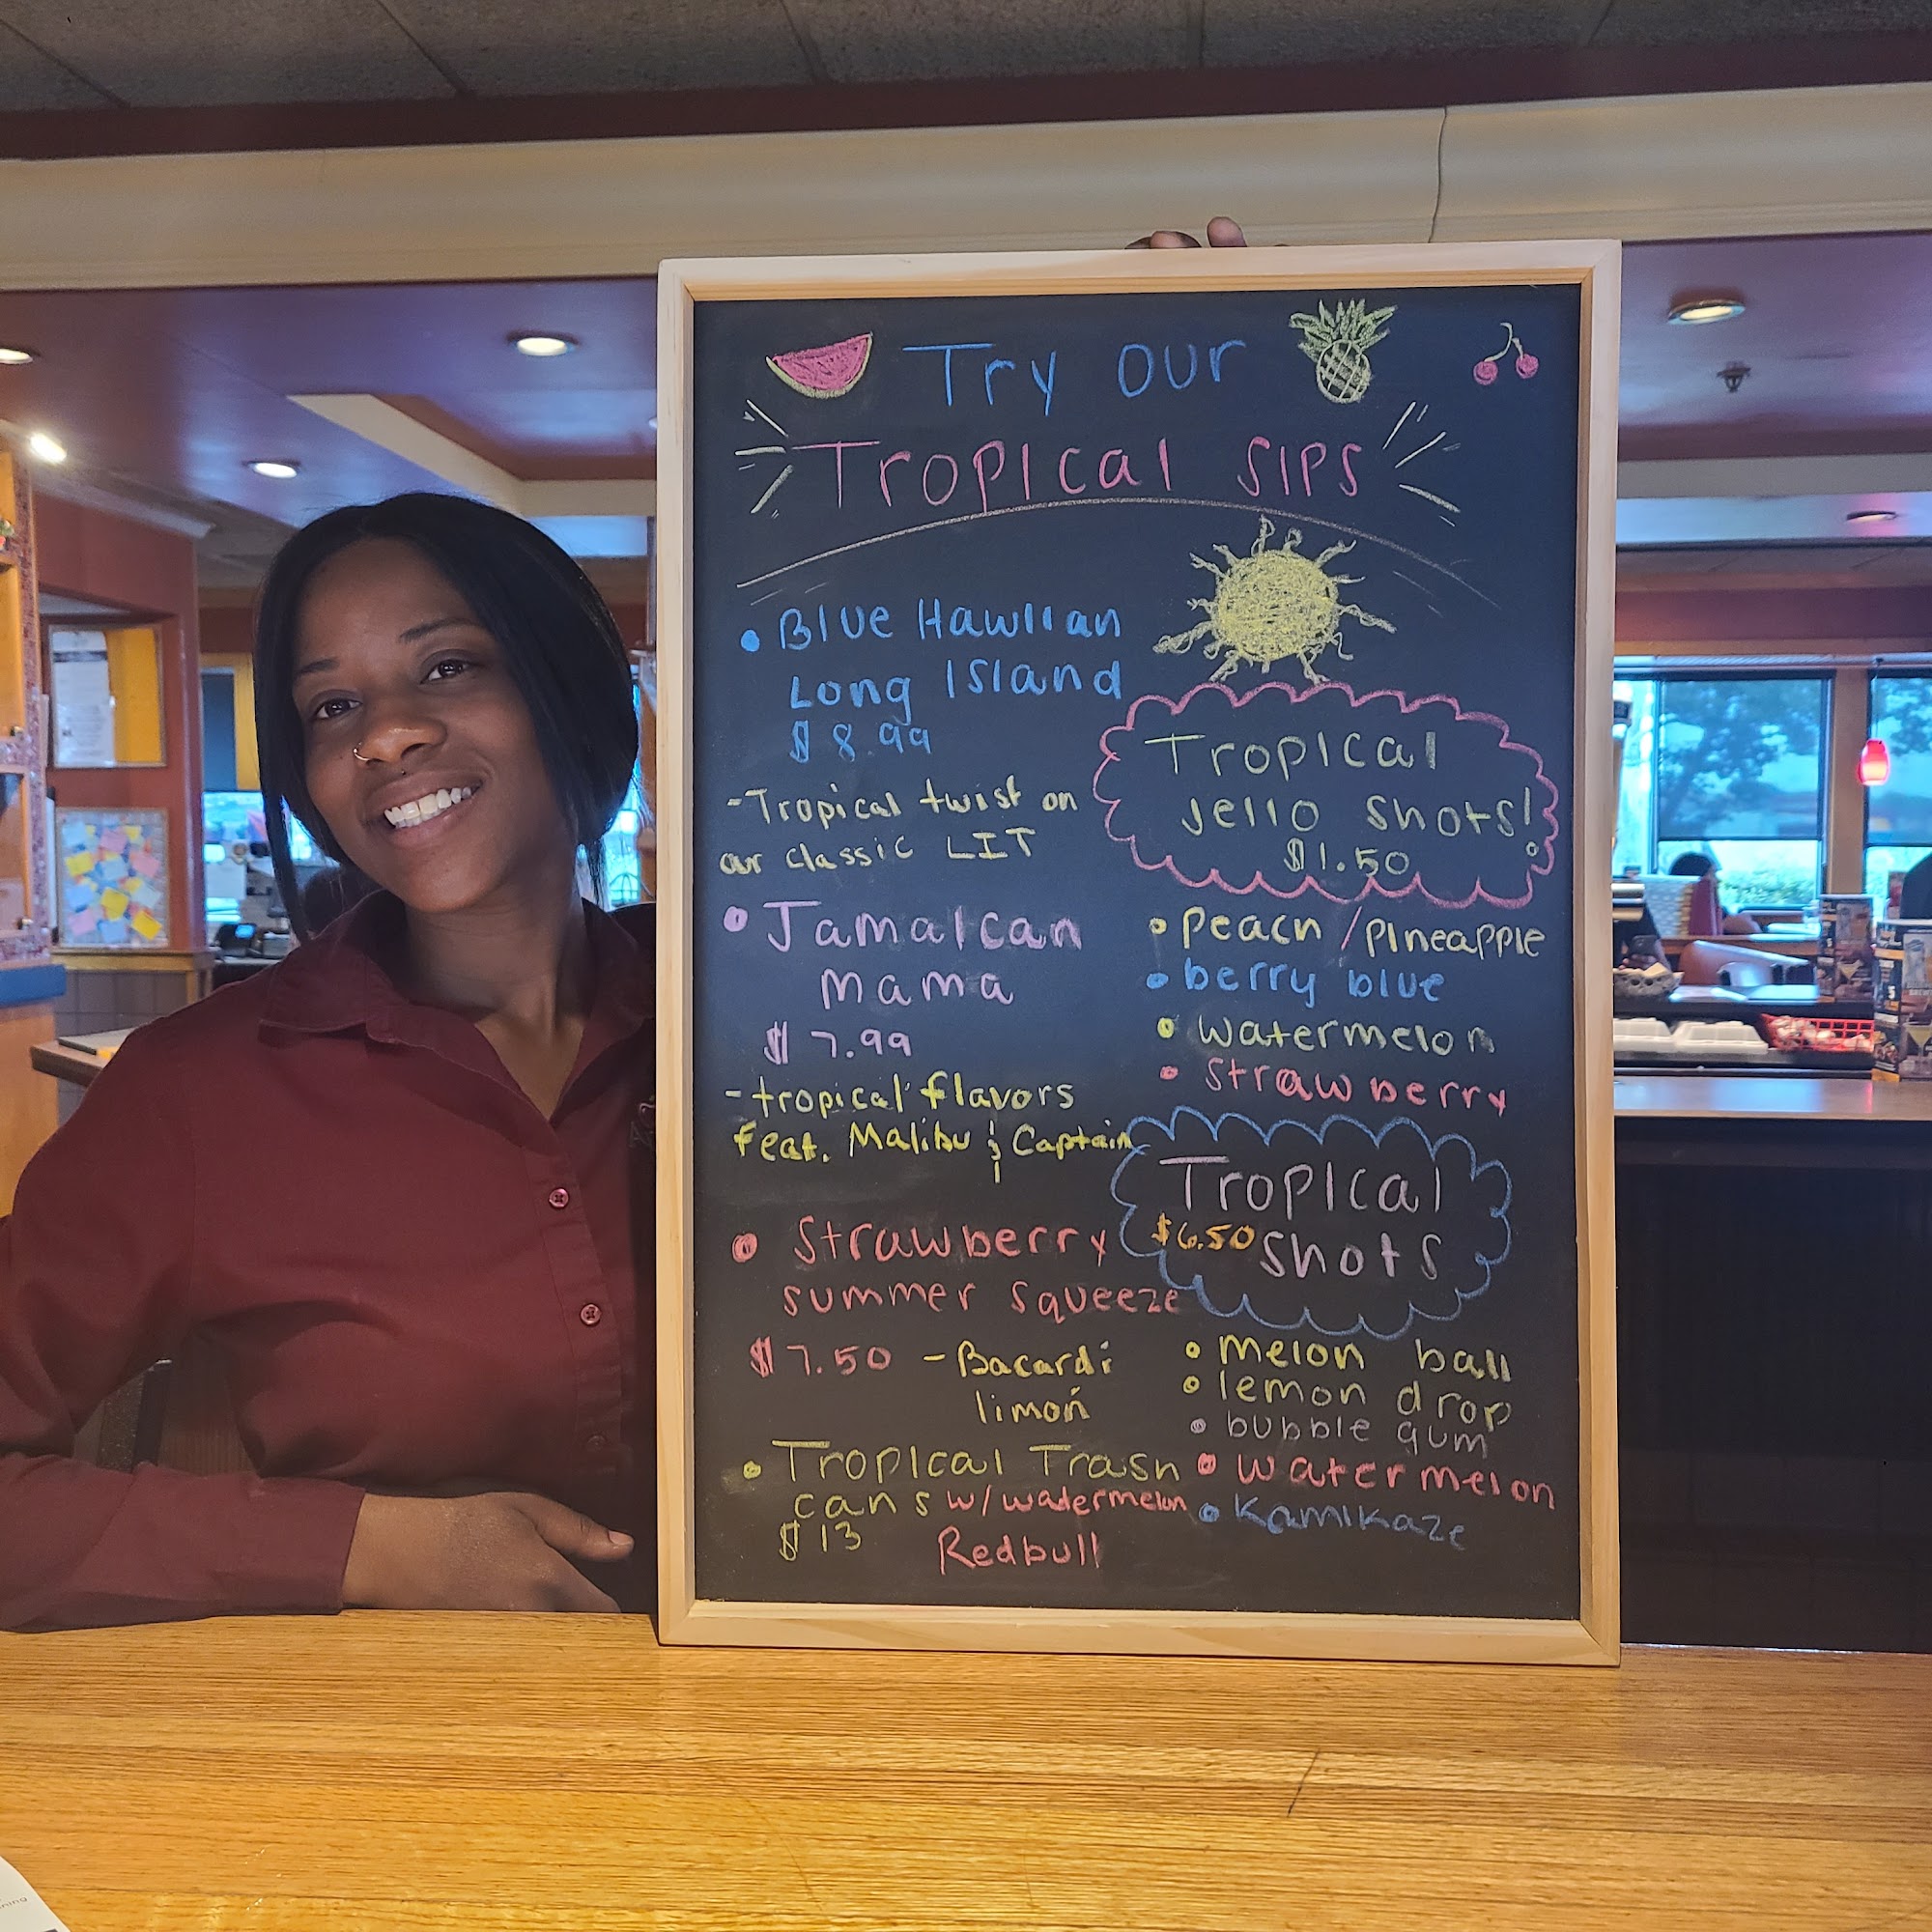 Try our
Tropical sips
Blue Hawiian
Long Island
$8.99
-Tropical twist on
our classic LIT
Jamaican
mama
$7.99
-tropical flavors
feat. Malibu & Captain
Strawberry
summer squeeze
$7.50 -Bacardi
limón
Tropical Trash
cans w/watermelon
$13 Redbull
Tropical
Jello shots!
$1.50
Peach/Pineapple
berry blue
watermelon
strawberry
Tropical
$6.50 shots
melon ball
lemon drop
bubble gum
watermelon
Kamikaze